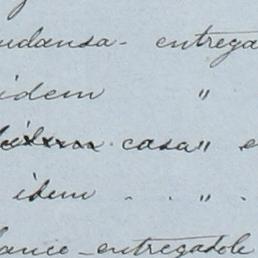 udansa - entrega
idem "
casa " e
idem - . " .
ance - entregadole